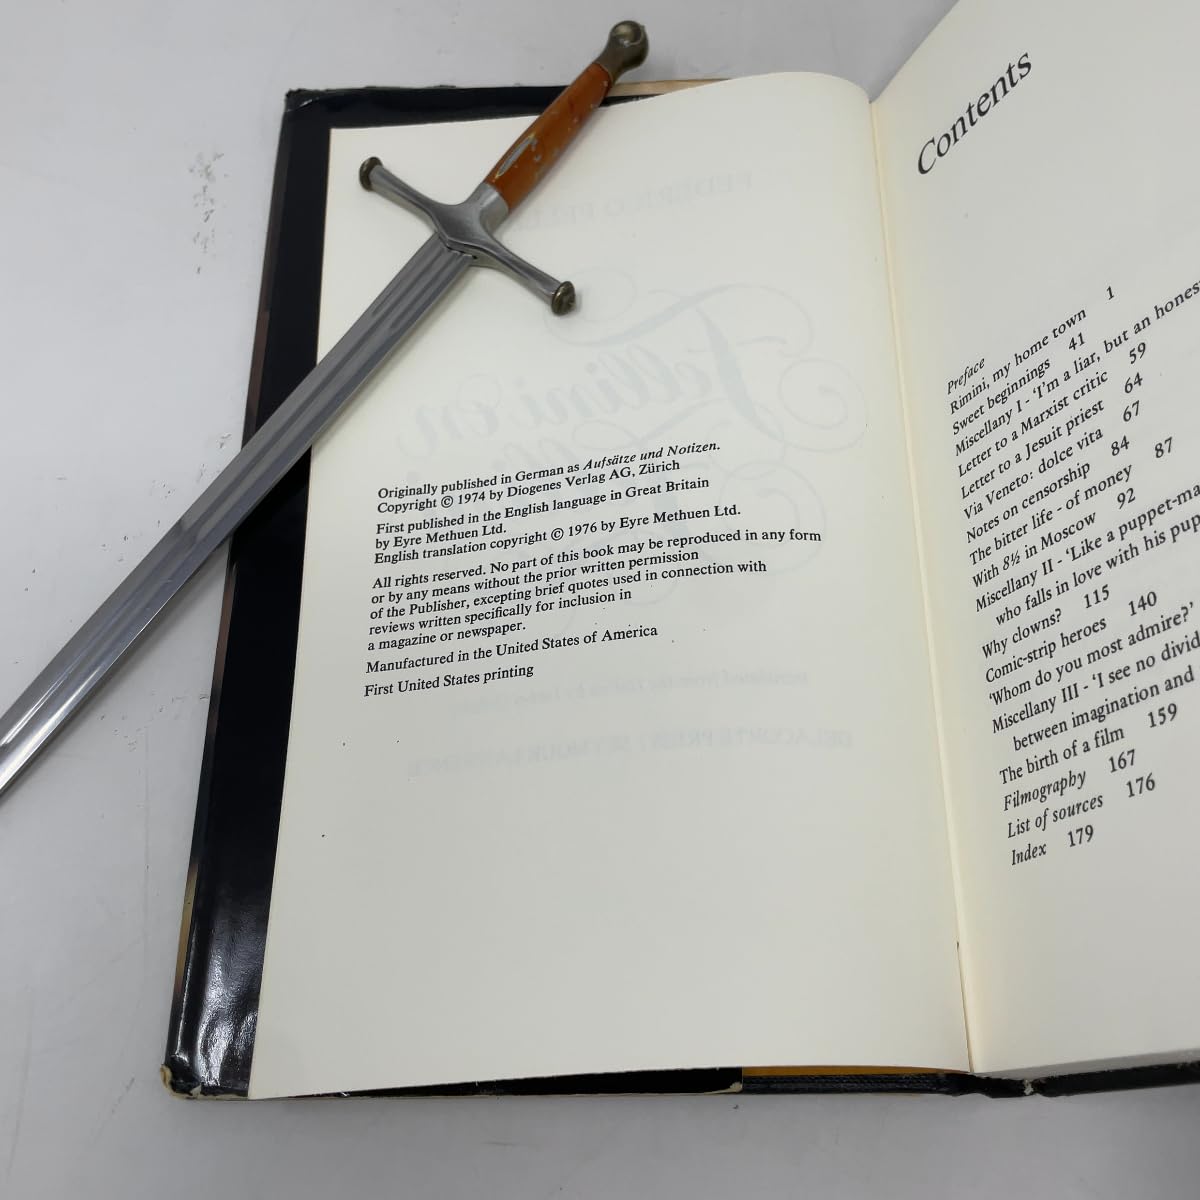 Originally published in German as Aufsätze und Notizen.
Copyright © 1974 by Diogenes Verlag AG, Zürich
First published in the English language in Great Britain
by Eyre Methuen Ltd.
English translation copyright © 1976 by Eyre Methuen Ltd.
All rights reserved. No part of this book may be reproduced in any form
or by any means without the prior written permission
of the Publisher, excepting brief quotes used in connection with
reviews written specifically for inclusion in
a magazine or newspaper.
Manufactured in the United States of America
First United States printing
Contents
Preface
Rimini, my home town 1
Sweet beginnings 41
Miscellany I - 'I'm a liar, but an hones
Letter to a Marxist critic 59
Letter to a Jesuit priest 64
Via Veneto: dolce vita 67
Notes on censorship 84
The bitter life - of money 87
With 8½ in Moscow 92
Miscellany II - 'Like a puppet-ma
who falls in love with his pup
Why clowns? 115
Comic-strip heroes 140
'Whom do you most admire?'
Miscellany III - 'I see no divid
between imagination and
The birth of a film 159
Filmography 167
List of sources 176
Index 179